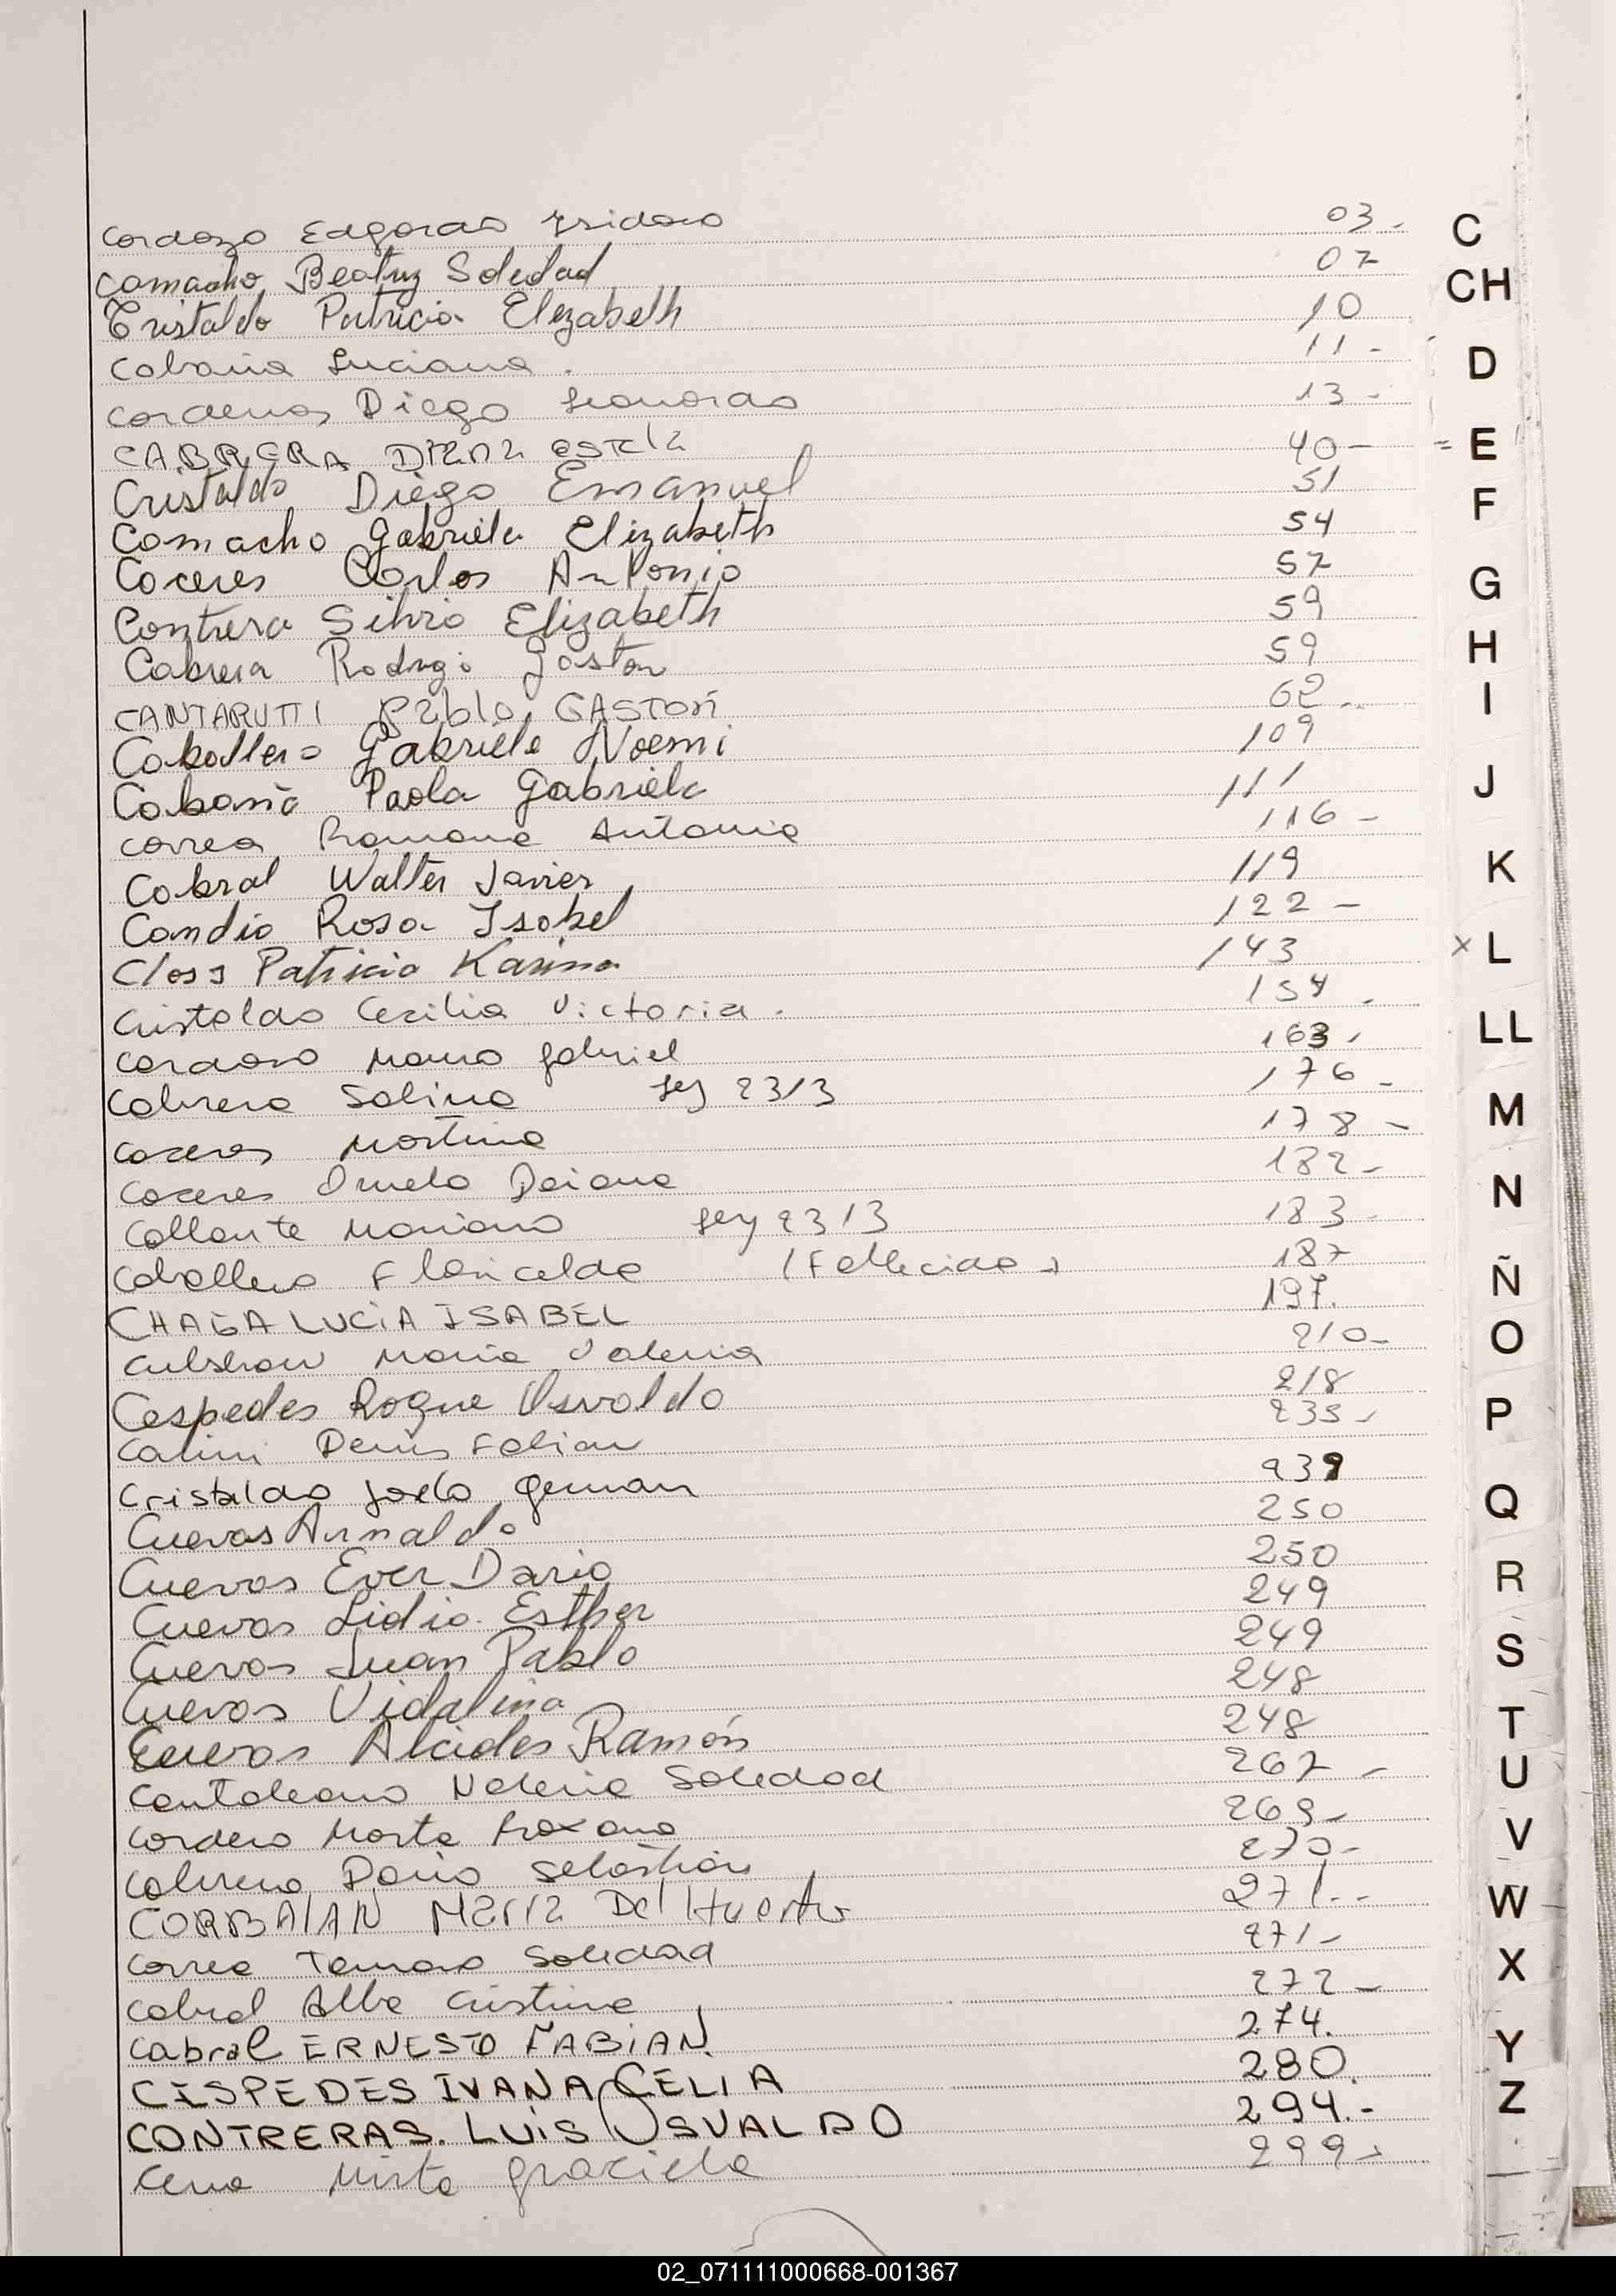 Cardozo Edgardo Isidoro 03.-
Camacho Beatriz Soledad 07
Cristaldo Patricia Elizabeth 10
Cabaña Luciana. 11-
Cardenas Diego Leonardo 13-
CABRERA Diana Estela 40-
Cristaldo Diego Emanuel 51
Camacho Gabriela Elizabeth 54
Caceres Carlos Antonio 57
Contrera Silvio Elizabeth 59
Cabrera Rodrigo Gaston 59
CANTARUTTI Pablo GASTON 62..
Caballero Gabriela Noemi 109
Cabaña Paola Gabriela 111
Correa Ramona Antonia 116-
Cabral Walter Javier 119
Candia Rosa Isabel 122-
Closs Patricia Karina 143
Cristaldo Cecilia Victoria. 154.
Cardozo Mario Gabriel 163.
Cabrera Sabina Ley 2313 176-
Caceres Martina 178-
Caceres Ornela Daiana 182-
Collante Mariano Ley 2313 183-
Caballero Floricelda (Fallecida) 187
CHAGA LUCIA ISABEL 197.
Culshaw Maria Valeria 210-
Cespedes Roque Osvaldo 218
Denis Fabian 235-
Cristaldo German 239
Cuevas Arnaldo 250
Cuevas Ever Dario 250
Cuevas Lidia Esther 249
Cuevas Juan Pablo 249
Cuevas Vidalina 248
Cuevas Alcides Ramón 248
Soledad 267-
Cordero Marta Roxana 269-
Cabrera Dario Sebastian 270-
CORBALAN Maria Del Huerto 271.--
Correa Tamara Soledad 271-
Cabral Alba Cristina 272-
Cabral ERNESTO FABIAN 274.
CESPEDES IVANA CELIA 280.
CONTRERAS. LUIS OSVALDO 294.-
Mirta Graciela 299-
C
CH
D
E
F
G
H
I
J
K
x L
LL
M
N
Ñ
O
P
Q
R
S
T
U
V
W
X
Y
Z
02_071111000668-001367